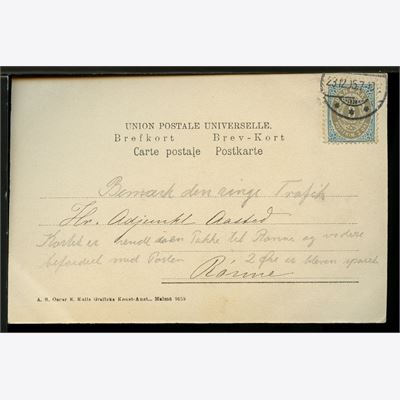 23.12.15.7-10
UNION POSTALE UNIVERSELLE.
Brefkort Brev-Kort
Carte postale Postkarte
Bemærk den ringe Trafik
Hr. Adjunkt Aasted
Kortet er sendt Takke til Rønne og videre
befordret med Posten 2 Øre er bleven sparet
Rønne
A. B. Oscar E. Kulls Grafiska Konst-Anst., Malmö